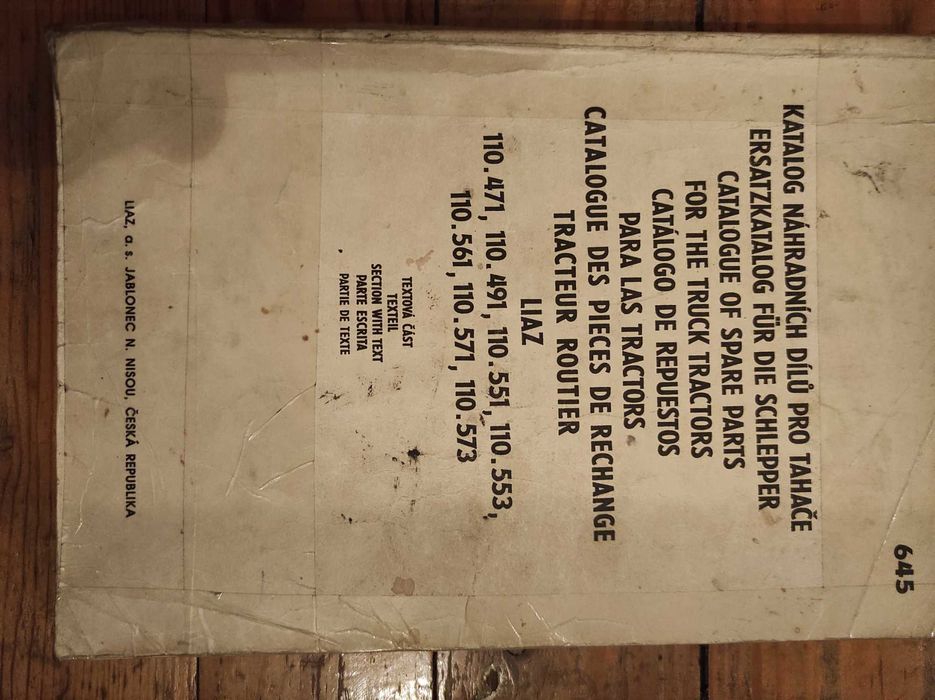 645
KATALOG NÁHRADNÍCH DÍLŮ PRO TAHAČE
ERSATZKATALOG FÜR DIE SCHLEPPER
CATALOGUE OF SPARE PARTS
FOR THE TRUCK TRACTORS
CATÁLOGO DE REPUESTOS
PARA LAS TRACTORS
CATALOGUE DES PIECES DE RECHANGE
TRACTEUR ROUTIER
LIAZ
110.471, 110.491, 110.551, 110.553,
110.561, 110.571, 110.573
TEXTOVÁ ČÁST
TEXTEIL
SECTION WITH TEXT
PARTE ESCRITA
PARTIE DE TEXTE
LIAZ, a. s. JABLONEC N. NISOU, ČESKÁ REPUBLIKA